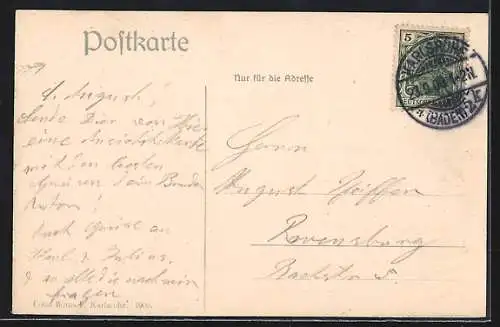 Postkarte
Nur für die Adresse
5
KARLSRUHE
(BADEN)
L. August!
Sende Dir von hier
eine Ansichtskarte
mit den besten
Grüssen Dein Bruder
Anton!
Auch Grüsse an
Karl & Julius.
& so alle die nach mir
fragen
Herrn
August Pfeiffer
Ravensburg
Bachstr. 5.
Karlsruhe. 1906.